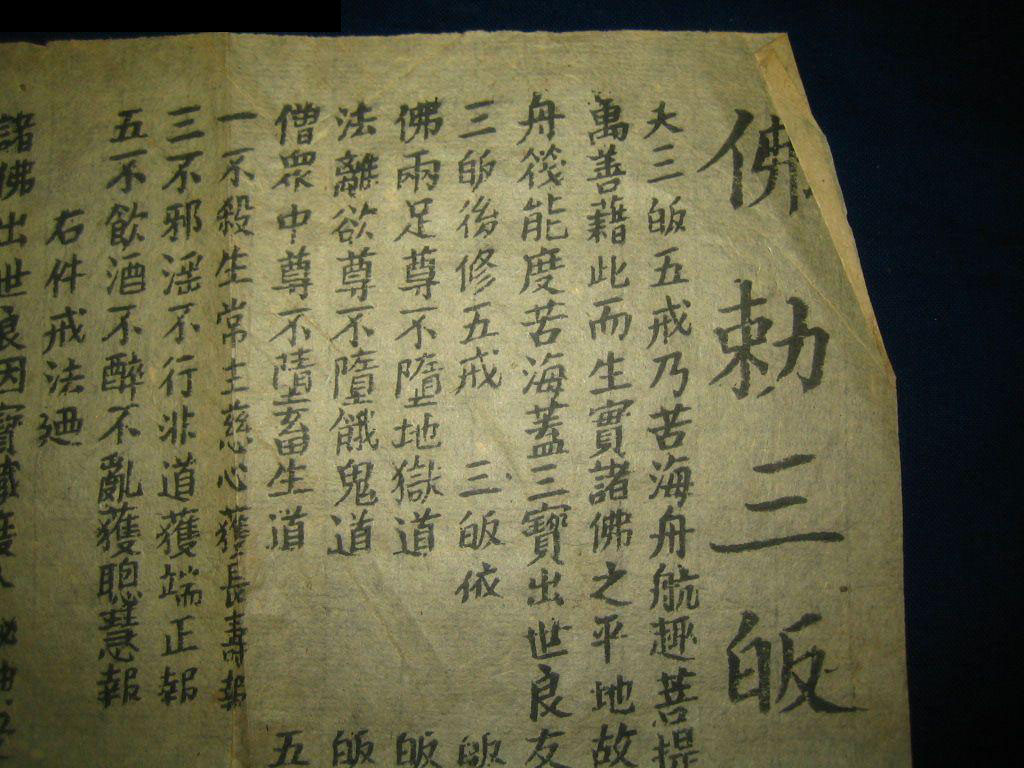 佛勅三皈
夫三皈五戒乃苦海舟航趣菩提
萬善藉此而生實諸佛之平地故
舟筏能度苦海蓋三寶出世良友
三皈後修五戒 三皈依 皈
佛兩足尊不墮地獄道 皈
法離欲尊不墮餓鬼道 皈
僧眾中尊不墮畜生道 五
一不殺生常主慈心獲長壽報
三不邪淫不行非道獲端正報
五不飲酒不醉不亂獲聰慧報
右件戒法廼
諸佛出世良因寶